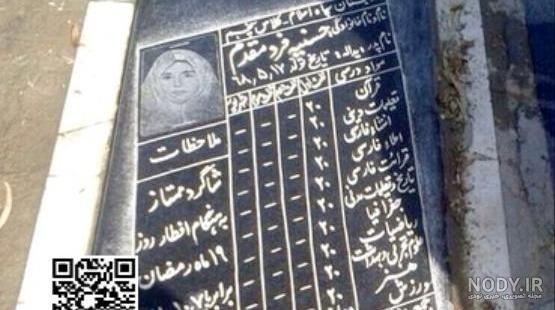 دبستان اسلام - کلاس پنجم
نام و نام خانوادگی: حسنیه فرد مقدم
نام پدر: یداله تاریخ تولد ۶۸,۵,۱۲
مواد درسی
قرآن ۲۰ - - -
تعلیمات دینی ۲۰ - - -
انشاء فارسی ۲۰ - - -
املاء فارسی ۲۰ - - -
قرائت فارسی ۲۰ - - -
تاریخ و تعلیمات مدنی ۲۰ - - -
جغرافیا ۲۰ - - -
ریاضیات ۲۰ - - -
علوم تجربی و بهداشت ۲۰ - - -
هنر ۲۰ - - -
ورزش ۲۰ - - -
ملاحظات
شاگرد ممتاز
به هنگام افطار روز
۱۹ ماه رمضان
برابر با
NODY.IR
مجله تصویری، خبری نودی